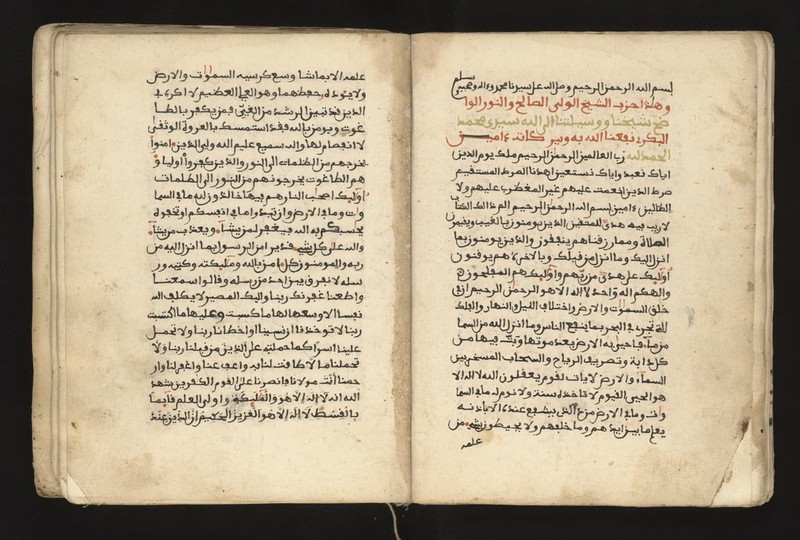 بسم الله الرحمن الرحيم وصلى الله على سيدنا محمد وءاله وصحبه وسلم
وهذا حزب الشيخ الولي الصالح والنور الوا
ضح شيخنا ووسيلتنا الى الله سيدي محمد
البكري نفعنا الله به وببركاته ءاميـــن
الحمد لله رب العالمين الرحمن الرحيم ملك يوم الدين
اياك نعبد واياك نستعين اهدنا الصراط المستقيم
صراط الذين انعمت عليهم غير المغضوب عليهم ولا
الظالين ءامين بسم الله الرحمن الرحيم الم ذلك الكتاب
لا ريب فيه هدى للمتقين الذين يومنون بالغيب ويقيمون
الصلاة ومما رزقناهم ينفقون والذين يومنون بما
انزل اليك وما انزل من قبلك وبالاخرة هم يوقنون
اوليك على هدى من ربهم واوليك هم المفلحون
والهكم اله واحد لا اله الا هو الرحمن الرحيم ان في
خلق السموات والارض واختلاف الليل والنهار والفلك
التي تجري في البحر بما ينفع الناس وما انزل الله من السما
من ما فاحيى به الارض بعد موتها وبث فيها من
كل دابة وتصريف الرياح والسحاب المسخر بين
السما والارض لايات لقوم يعقلون الله لا اله الا
هو الحي القيوم لا تاخذه سنة ولا نوم له ما في السما
وات وما في الارض من ذا الذي يشفع عنده الا باذنه
يعلم ما بين ايديهم وما خلفهم ولا يحيطون بشيء من
علمه
علمه الا بما شا وسع كرسيه السموات والارض
ولا يوده حفظهما وهو العلي العظيم لا اكراه في
الدين قد تبين الرشد من الغي فمن يكفر بالطا
غوت ويومن بالله فقد استمسك بالعروة الوثقى
لا انفصام لها والله سميع عليم الله ولي الذين امنوا
يخرجهم من الظلمات الى النور والذين كفروا اوليا
هم الطاغوت يخرجونهم من النور الى الظلمات
اوليك اصحب النار هم فيها خالدون لله ما في السما
وات وما في الارض وان تبدوا ما في انفسكم او تخفوه
يحسبكم به الله فيغفر لمن يشا ويعذب من يشا
والله على كل شيء قدير امن الرسول بما انزل اليه من
ربه والمومنون كل امن بالله ومليكته وكتبه ور
سله لا نفرق بين احد من رسله وقالوا سمعنا
واطعنا غفرنك ربنا واليك المصير لا يكلف الله
نفسا الا وسعها لها ما كسبت وعليها ما اكتسبت
ربنا لا تواخذنا ان نسينا او اخطانا ربنا ولا تحمل
علينا اصرا كما حملته على الذين من قبلنا ربنا ولا
تحملنا ما لا طاقت لنا به واعف عنا واغفر لنا وار
حمنا انت مولانا فانصرنا على القوم الكفرين شهد
الله انه لا اله الا هو والمليكة واولوا العلم قايما
بالقسط لا اله الا هو العزيز الحكيم ان الدين عند